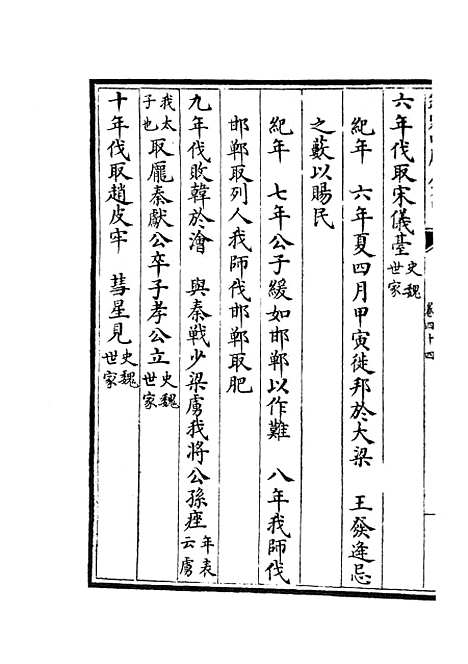 卷四十四
六年伐取宋儀臺史魏世家
紀年　六年夏四月甲寅徙邦於大梁　王發逢忌
之藪以賜民
紀年　七年公子緩如邯鄲以作難　八年我師伐
邯鄲取列人我師伐邯鄲取肥
九年伐敗韓於澮　與秦戰少梁虜我將公孫痤年表云虜
我太子也取龐秦獻公卒子孝公立史魏世家
十年伐取趙皮牢　彗星見史魏世家